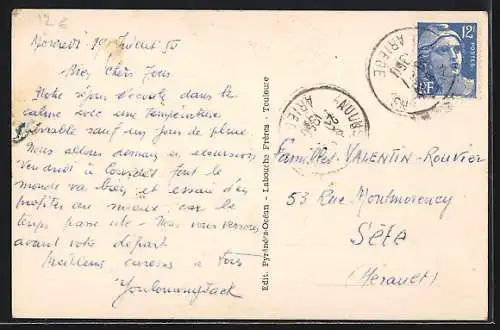 12 €
Mercredi 19 Juillet 50
Bien chers Tous
Notre séjour s'écoule dans le
calme avec une température
agréable sauf un jour de pluie.
Nous allons demain en excursion,
Vendredi à Lourdes. Tout le
monde va bien et essaie d'en
profiter au mieux, car le
temps passe vite. Nous vous verrons
avant votre départ
Meilleurs caresses a Tous
Edit. Pyrénées-Océan - Labouche Frères - Toulouse
12F
POSTES
RF
ARIEGE
ARIEGE
Familles VALENTIN-ROUVIER
53 Rue Montmorency
Sète
(Hérault)